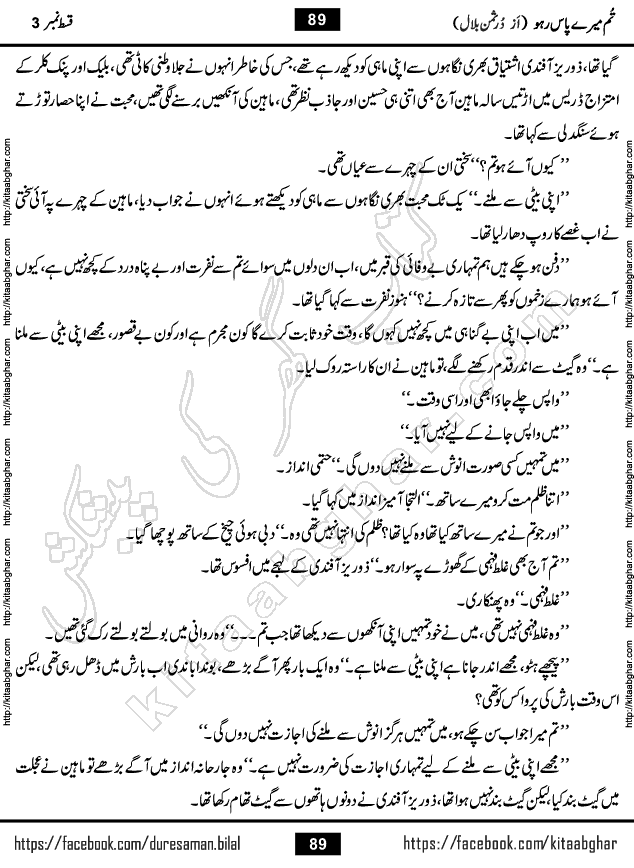 تُم میرے پاس رہو (از دُرثمن بلال)
89
قسط نمبر 3
گیا تھا، ذوریز آفندی اشتیاق بھری نگاہوں سے اپنی ماہی کو دیکھ رہے تھے، جس کی خاطر انہوں نے جلاوطنی کاٹی تھی، بلیک اور پنک کلر کے
امتزاج ڈریس میں اڑتیس سالہ ماہین آج بھی اتنی ہی حسین اور جاذب نظر تھی، ماہین کی آنکھیں برسنے لگی تھیں، محبت نے اپنا حصار توڑتے
ہوئے سنگدلی سے کہا تھا۔
’’کیوں آئے ہو تم؟‘‘ سختی ان کے چہرے سے عیاں تھی۔
’’اپنی بیٹی سے ملنے۔‘‘ یک ٹک محبت بھری نگاہوں سے ماہی کو دیکھتے ہوئے انہوں نے جواب دیا، ماہین کے چہرے پہ آئی سختی
نے اب غصے کا روپ دھار لیا تھا۔
’’دفن ہو چکے ہیں ہم تمہاری بے وفائی کی قبر میں، اب ان دلوں میں سوائے تم سے نفرت اور بے پناہ درد کے کچھ نہیں ہے، کیوں
آئے ہو ہمارے زخموں کو پھر سے تازہ کرنے؟‘‘ ہنوز نفرت سے کہا گیا تھا۔
’’میں اب اپنی بے گناہی میں کچھ نہیں کہوں گا، وقت خود ثابت کرے گا کون مجرم ہے اور کون بے قصور، مجھے اپنی بیٹی سے ملنا
ہے۔‘‘ وہ گیٹ سے اندر قدم رکھنے لگے، تو ماہین نے ان کا راستہ روک لیا۔
’’واپس چلے جاؤ ابھی اور اسی وقت۔‘‘
’’میں واپس جانے کے لیے نہیں آیا۔‘‘
’’میں تمہیں کسی صورت انوش سے ملنے نہیں دوں گی۔‘‘ حتمی انداز۔
’’اتنا ظلم مت کرو میرے ساتھ۔‘‘ التجا آمیز انداز میں کہا گیا۔
’’اور جو تم نے میرے ساتھ کیا تھا وہ کیا تھا؟ ظلم کی انتہا نہیں تھی وہ۔‘‘ دبی ہوئی چیخ کے ساتھ پوچھا گیا۔
’’تم آج بھی غلط فہمی کے گھوڑے پہ سوار ہو۔‘‘ ذوریز آفندی کے لہجے میں افسوس تھا۔
’’غلط فہمی۔‘‘ وہ پھنکاری۔
’’وہ غلط فہمی نہیں تھی، میں نے خود تمہیں اپنی آنکھوں سے دیکھا تھا جب تم۔۔۔‘‘ وہ روانی میں بولتے بولتے رک گئی تھیں۔
’’پیچھے ہٹو، مجھے اندر جانا ہے اپنی بیٹی سے ملنا ہے۔‘‘ وہ ایک بار پھر آگے بڑھے، بوندا باندی اب بارش میں ڈھل رہی تھی، لیکن
اس وقت بارش کی پروا کس کو تھی؟
’’تم میرا جواب سن چکے ہو، میں تمہیں ہرگز انوش سے ملنے کی اجازت نہیں دوں گی۔‘‘
’’مجھے اپنی بیٹی سے ملنے کے لیے تمہاری اجازت کی ضرورت نہیں ہے۔‘‘ وہ جارحانہ انداز میں آگے بڑھے تو ماہین نے عجلت
میں گیٹ بند کیا، لیکن گیٹ بند نہیں ہوا تھا، ذوریز آفندی نے دونوں ہاتھوں سے گیٹ تھام رکھا تھا۔
http://kitaabghar.com
http://kitaabghar.com
http://kitaabghar.com
http://kitaabghar.com
http://kitaabghar.com
http://kitaabghar.com
http://kitaabghar.com
http://kitaabghar.com
http://kitaabghar.com
http://kitaabghar.com
http://kitaabghar.com
http://kitaabghar.com
کتاب گھر کی پیشکش
kitaabghar.com
https://facebook.com/duresaman.bilal
89
https://facebook.com/kitaabghar